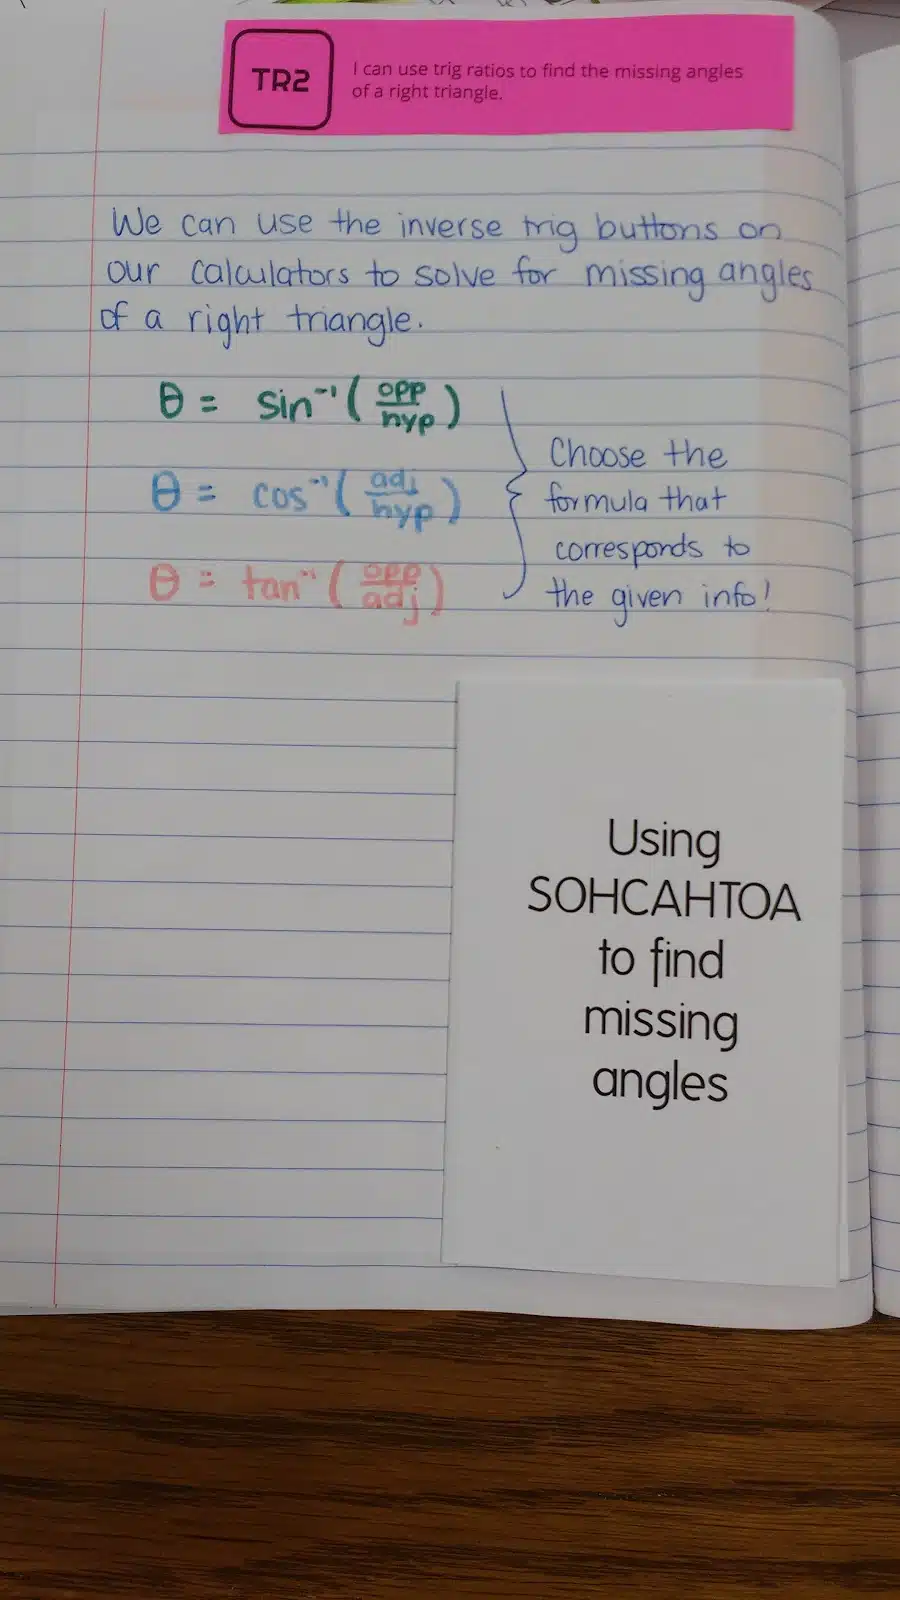 TR2
I can use trig ratios to find the missing angles
of a right triangle.
We can use the inverse trig buttons on
our calculators to solve for missing angles
of a right triangle.
θ = sin⁻¹ (opp/hyp)
θ = cos⁻¹ (adj/hyp)
θ = tan⁻¹ (opp/adj)
Choose the
formula that
corresponds to
the given info!
Using
SOHCAHTOA
to find
missing
angles